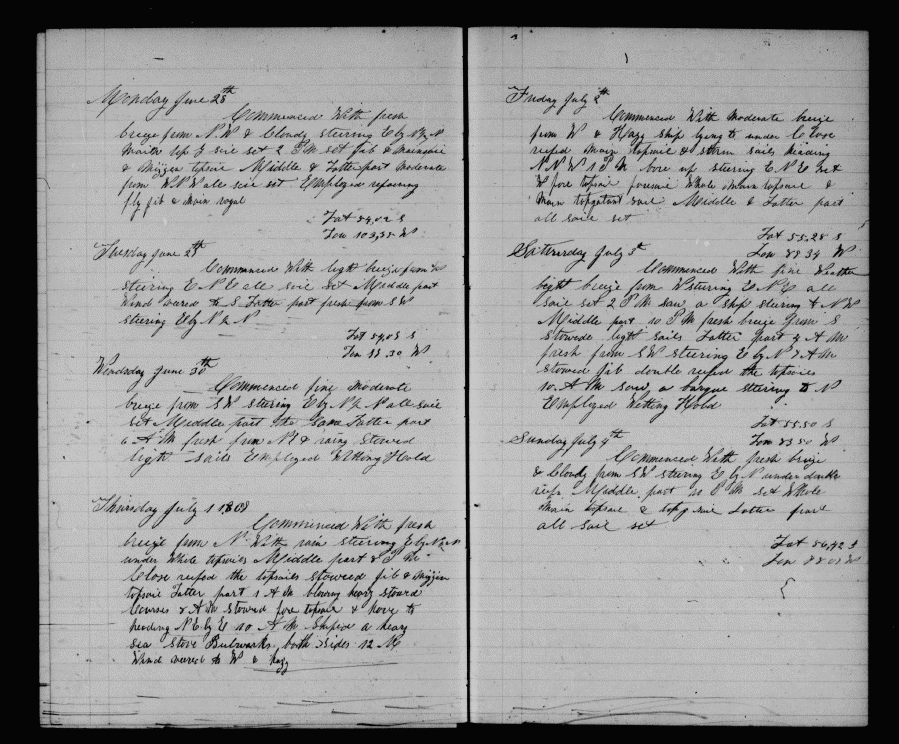 Monday June 28th
Commenced With fresh
breeze from N W & Cloudy steering E by N 1/2 N
main top g saile set 2 P M set jib & mainsaile
& Mizzen topsaile Middle & Latter part moderate
from W N W all saile set Employed repairing
fly jib & main royal
Lat 54,02 S
Lon 103,35 W
Tuesday June 29th
Commenced With light breeze from W
steering E N E all saile set Middle part
Wind veered to S Latter part fresh from S W
steering E by N 1/2 N
Lat 54,03 S
Lon 30 W
Wendsday June 30th
Commenced fine moderate
breeze from S W steering E by N 1/2 N all saile
set Middle part the Same Latter part
6 A M fresh from & rainy Stowed
light sails Employed Wetting Hold
Thursday July 1
Commenced With fresh
breeze from N With rain steering E by N 1/2 N
under Whole topsailes Middle part 8 P M
Close reefed the topsailes stowed jib & Mizzen
topsaile Latter part 1 A M blowing heavy stowed
Courses A M stowed fore topsaile & hove to
heading N E by E 10 A M Shiped a heavy
sea stove Bulwarks both sides 12 M
Wind veered to W & hazy
Friday July 2nd
Commenced With Moderate breeze
from W & Hazy ship lying to under Close
reefed main topsaile & storm sails heading
N N W 1 P M bore up steering E N E set
fore topsaile Whole main topsaile &
Main topgalant saile Middle & Latter part
all saile set
Lat 55,28 S
Lon 34 W
Saturday July 3d
Commenced With fine Weather
light breeze from W steering E N E all
saile set 2 P M saw a ship steering N W
Middle part 10 P M fresh breeze from S
stowed light sails Latter part 4 A M
fresh from S W steering E by N 7 A M
stowed jib double reefed the topsailes
10 A M saw a barque steering to N
Employed Wetting Hold
Lat 55.50 S
Lon 50 W
Sunday July 4th
Commenced With fresh breeze
& Cloudy from S W steering E by N under double
reefs Middle part 10 P M set Whole
Main topsaile & top g saile Latter part
all saile set
Lat 56,42 S
Lon W